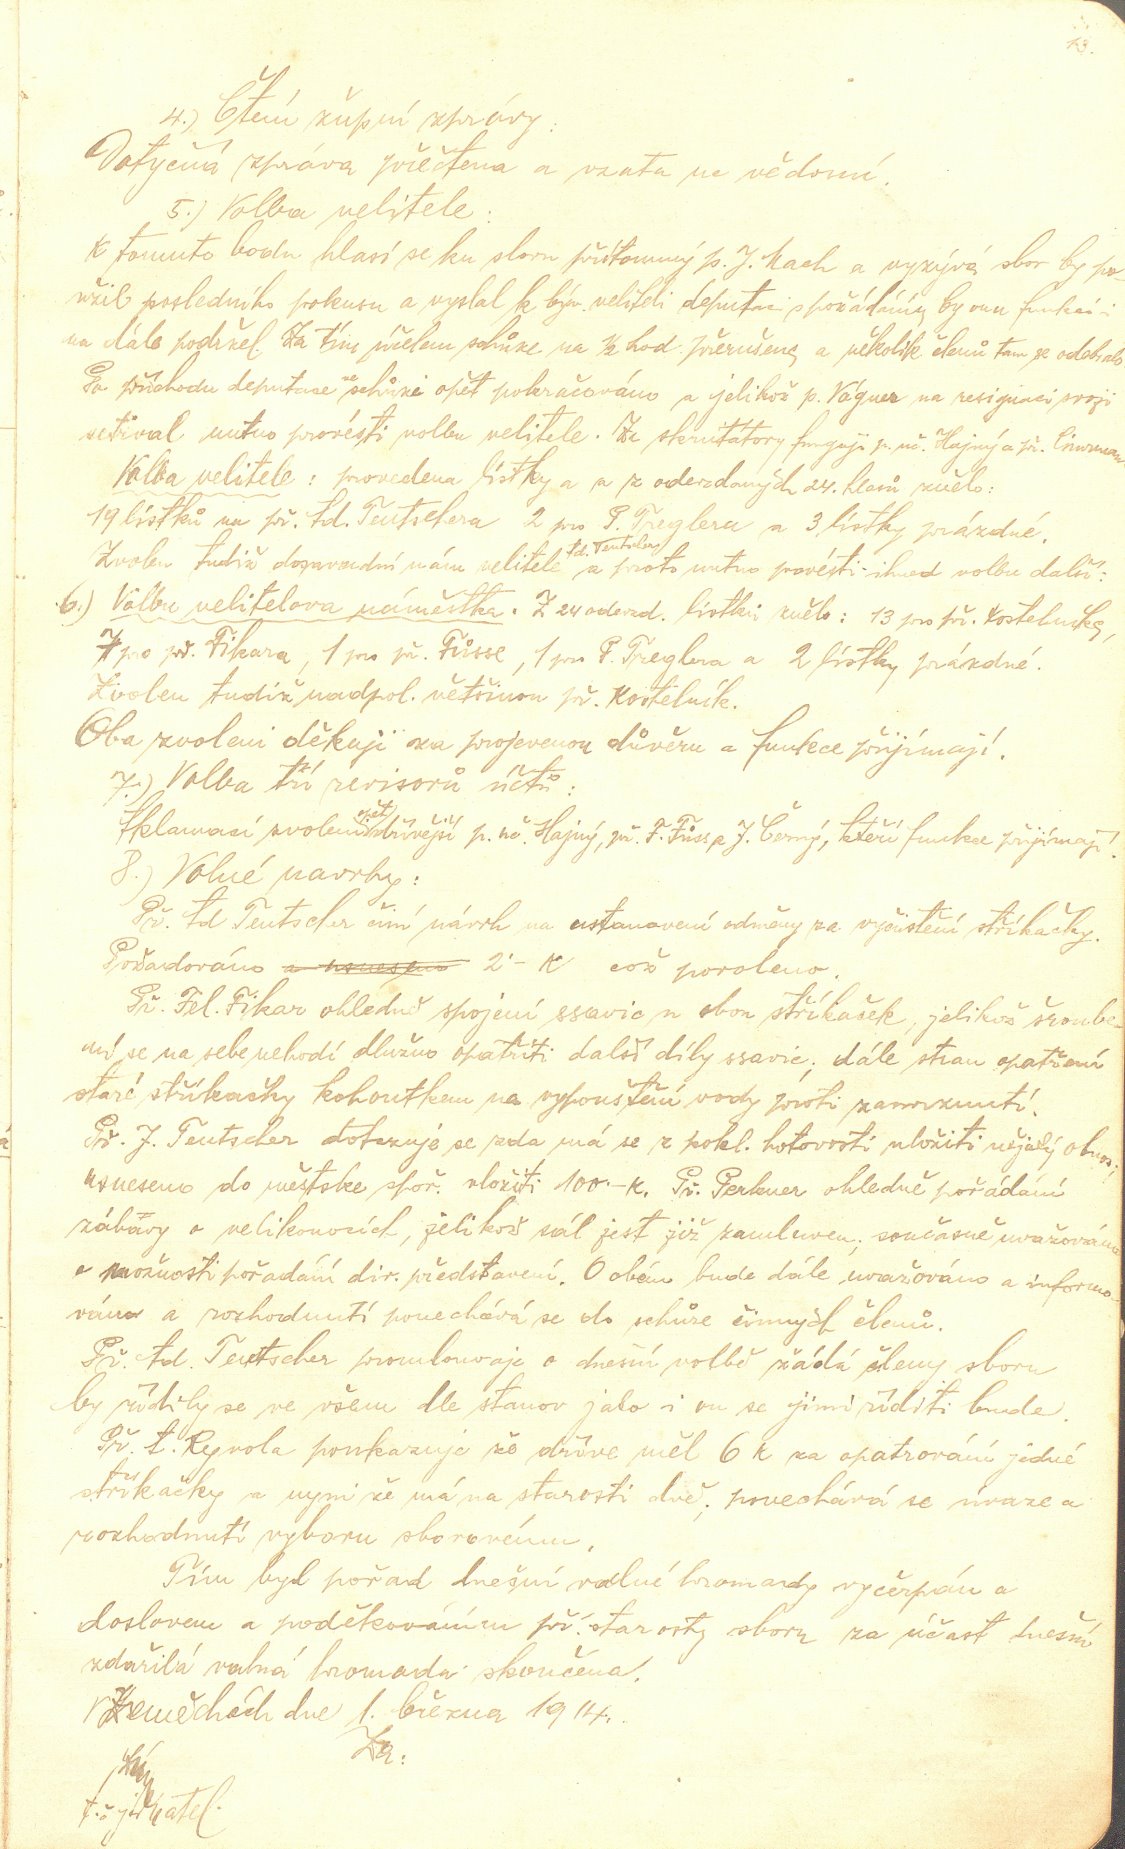 13.
4.) Čtení župní zprávy:
Dotyčná zpráva přečtena a vzata na vědomí.
5.) Volba velitele:
K tomuto bodu hlasí se ku slovu přítomný p. J. Kach a vyzývá sbor by po-
užil posledního pokusu a vyslal k býv. veliteli deputaci s požádáním by onu funkci i
na dále podržel. Za tím účelem schůze na ½ hod. přerušena a několik členů tam se odebralo.
Po příchodu deputace ve schůzi opět pokračováno a jelikož p. Vágner na resignaci svoji
setrval nutno provésti volbu velitele. Za skrutátory fungují p. uč. Hajný a př.
Volba velitele: provedena lístky a z odevzdaných 24. hlasů znělo:
19 lístků na př. td. Teutschera 2 pro P. Treglera a 3 lístky prázdné.
Zvolen tudíž dosavadní nám. velitele td. Teutscher a proto nutno provésti ihned volbu další:
6.) Volbu velitelova náměstka. Z 24 odevzd. lístků znělo: 13 pro př. Kostelníka,
7 pro př. Fikara, 1 pro př. Füsse, 1 pro P. Treglera a 2 lístky prázdné.
Zvolen tudíž nadpol. většinou př. Kostelník.
Oba zvolení děkují za projevenou důvěru a funkce přijímají.
7.) Volba tří revisorů účtů:
Aklamací zvoleni opět dřívější p. uč. Hajný, př. F. Füss a J. Černý, kteří funkce přijímají.
8.) Volné návrhy:
Př. td Teutscher činí návrh na ustanovení odměny za vyčistění stříkačky.
Požadováno a usneseno 2·– K což povoleno.
Př. Fel. Fikar ohledně spojení ssavic u obou stříkaček, jelikož šroube-
ní se na sebe nehodí dlužno opatřiti další díly ssavic; dále stran opatření
staré stříkačky kohoutkem na vypouštění vody proti zamrznutí.
Př. J. Teutscher dotazuje se zda má se z pokl. hotovosti uložiti nějaký obnos;
usneseno do městské spoř. vložiti 100·– K. Př. Perkner ohledně pořádání
zábavy o velikonocích, jelikož sál jest již zamluven; současně uvažováno
o možnosti pořádání div. představení. O obém bude dále uvažováno a informo-
váno a rozhodnutí ponechává se do schůze činných členů.
Př. td. Teutscher promlouvaje o dnešní volbě žádá členy sboru
by řídily se ve všem dle stanov jako i on se jimi říditi bude.
Př. t. Reyvola poukazuje že dříve měl 6 K za opatrování jedné
stříkačky a nyní že má na starosti dvě; ponechává se úvaze a
rozhodnutí výboru sborovému.
Tím byl pořad dnešní valné hromady vyčerpán a
doslovem a poděkováním př. starosty sboru za účast dnešní
zdařilá valná hromada skončena.
dne 1. března 1914.
Za:
t. č. jednatel.